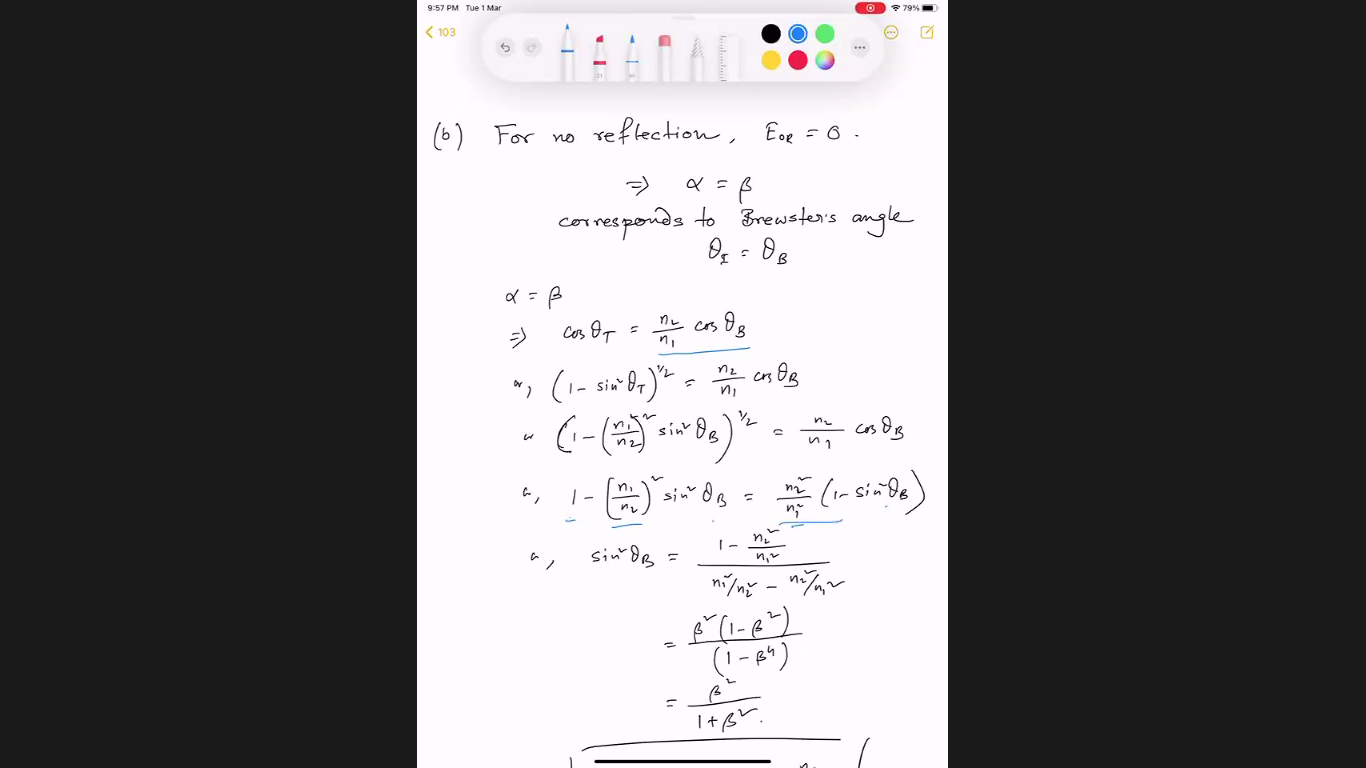 9:57 PM Tue 1 Mar 79%
103
(b) For no reflection, E_OR = 0.
⇒ α = β
corresponds to Brewster's angle
θ_I = θ_B
α = β
⇒ cos θ_T = n₂/n₁ cos θ_B
or, (1 - sin² θ_T)^1/2 = n₂/n₁ cos θ_B
or (1 - (n₁/n₂)² sin² θ_B)^1/2 = n₂/n₁ cos θ_B
or, 1 - (n₁/n₂)² sin² θ_B = n₂²/n₁² (1 - sin² θ_B)
or, sin² θ_B = (1 - n₂²/n₁²) / (n₁²/n₂² - n₂²/n₁²)
= β² (1 - β²) / (1 - β⁴)
= β² / (1 + β²).